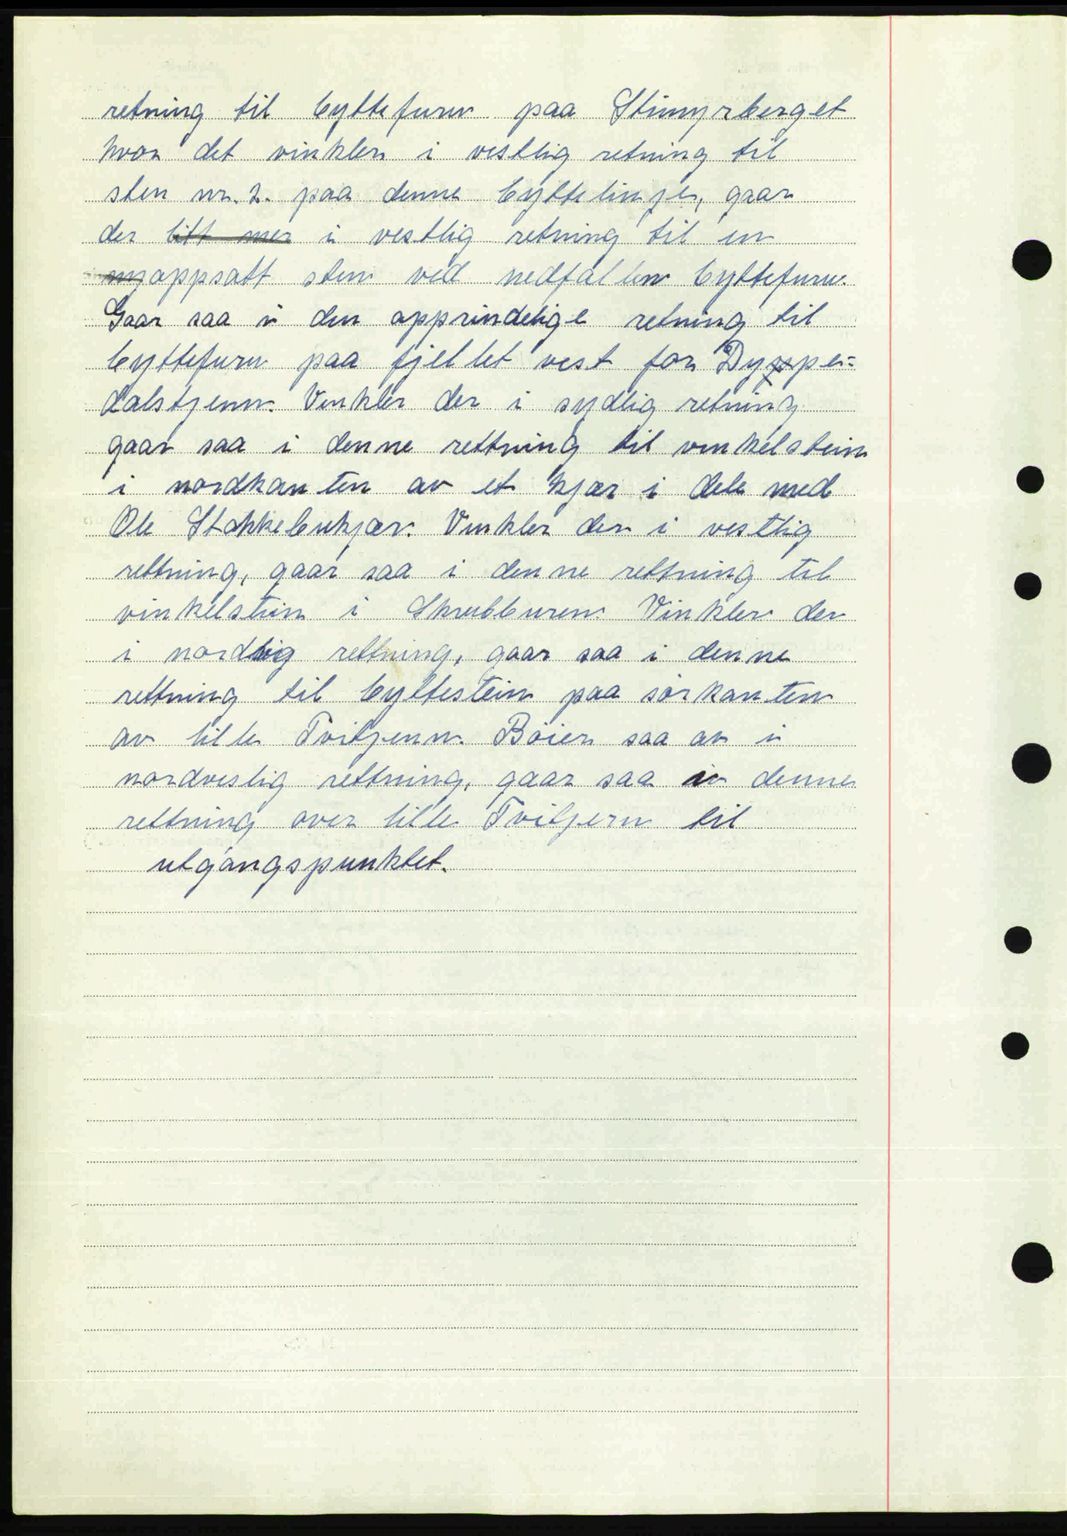 retning til byttefuru paa Stimyrberget
hvor det vinkler i vestlig retning til
sten nr. 2. paa denne byttelinje, gaar
der litt mer i vestlig retning til en
oppsatt sten ved nedfallen byttefuru.
Gaar saa i den opprindelige retning til
byttefuru paa fjellet vest for Dypper=
dalstjenn. Vinkler der i sydlig retning
gaar saa i denne rettning til vinkelstein
i nordkanten av et kjær i dele med
Ole Stokkebukjær. Vinkler der i vestlig
rettning, gaar saa i denne rettning til
vinkelstein i Skrubburen. Vinkler der
i nordlig rettning, gaar saa i denne
rettning til byttestein paa sørkanten
av lille Tvitjenn. Bøier saa av i
nordvestlig rettning, gaar saa i denne
rettning over lille Tvitjern til
utgangspunktet.